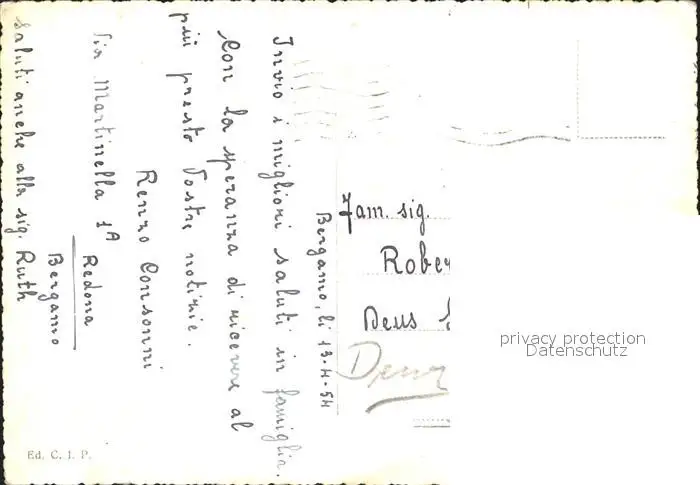 Bergamo, li 13-4-54
Invio i migliori saluti in famiglia.
Con la speranza di ricevere al
più presto Vostre notizie.
Renzo Consonni
Via Martinella 1A
Redona
Bergamo
saluti anche alla sig. Ruth
Fam. sig.
Rober
Deus
privacy protection
Datenschutz
Ed. C. I. P.